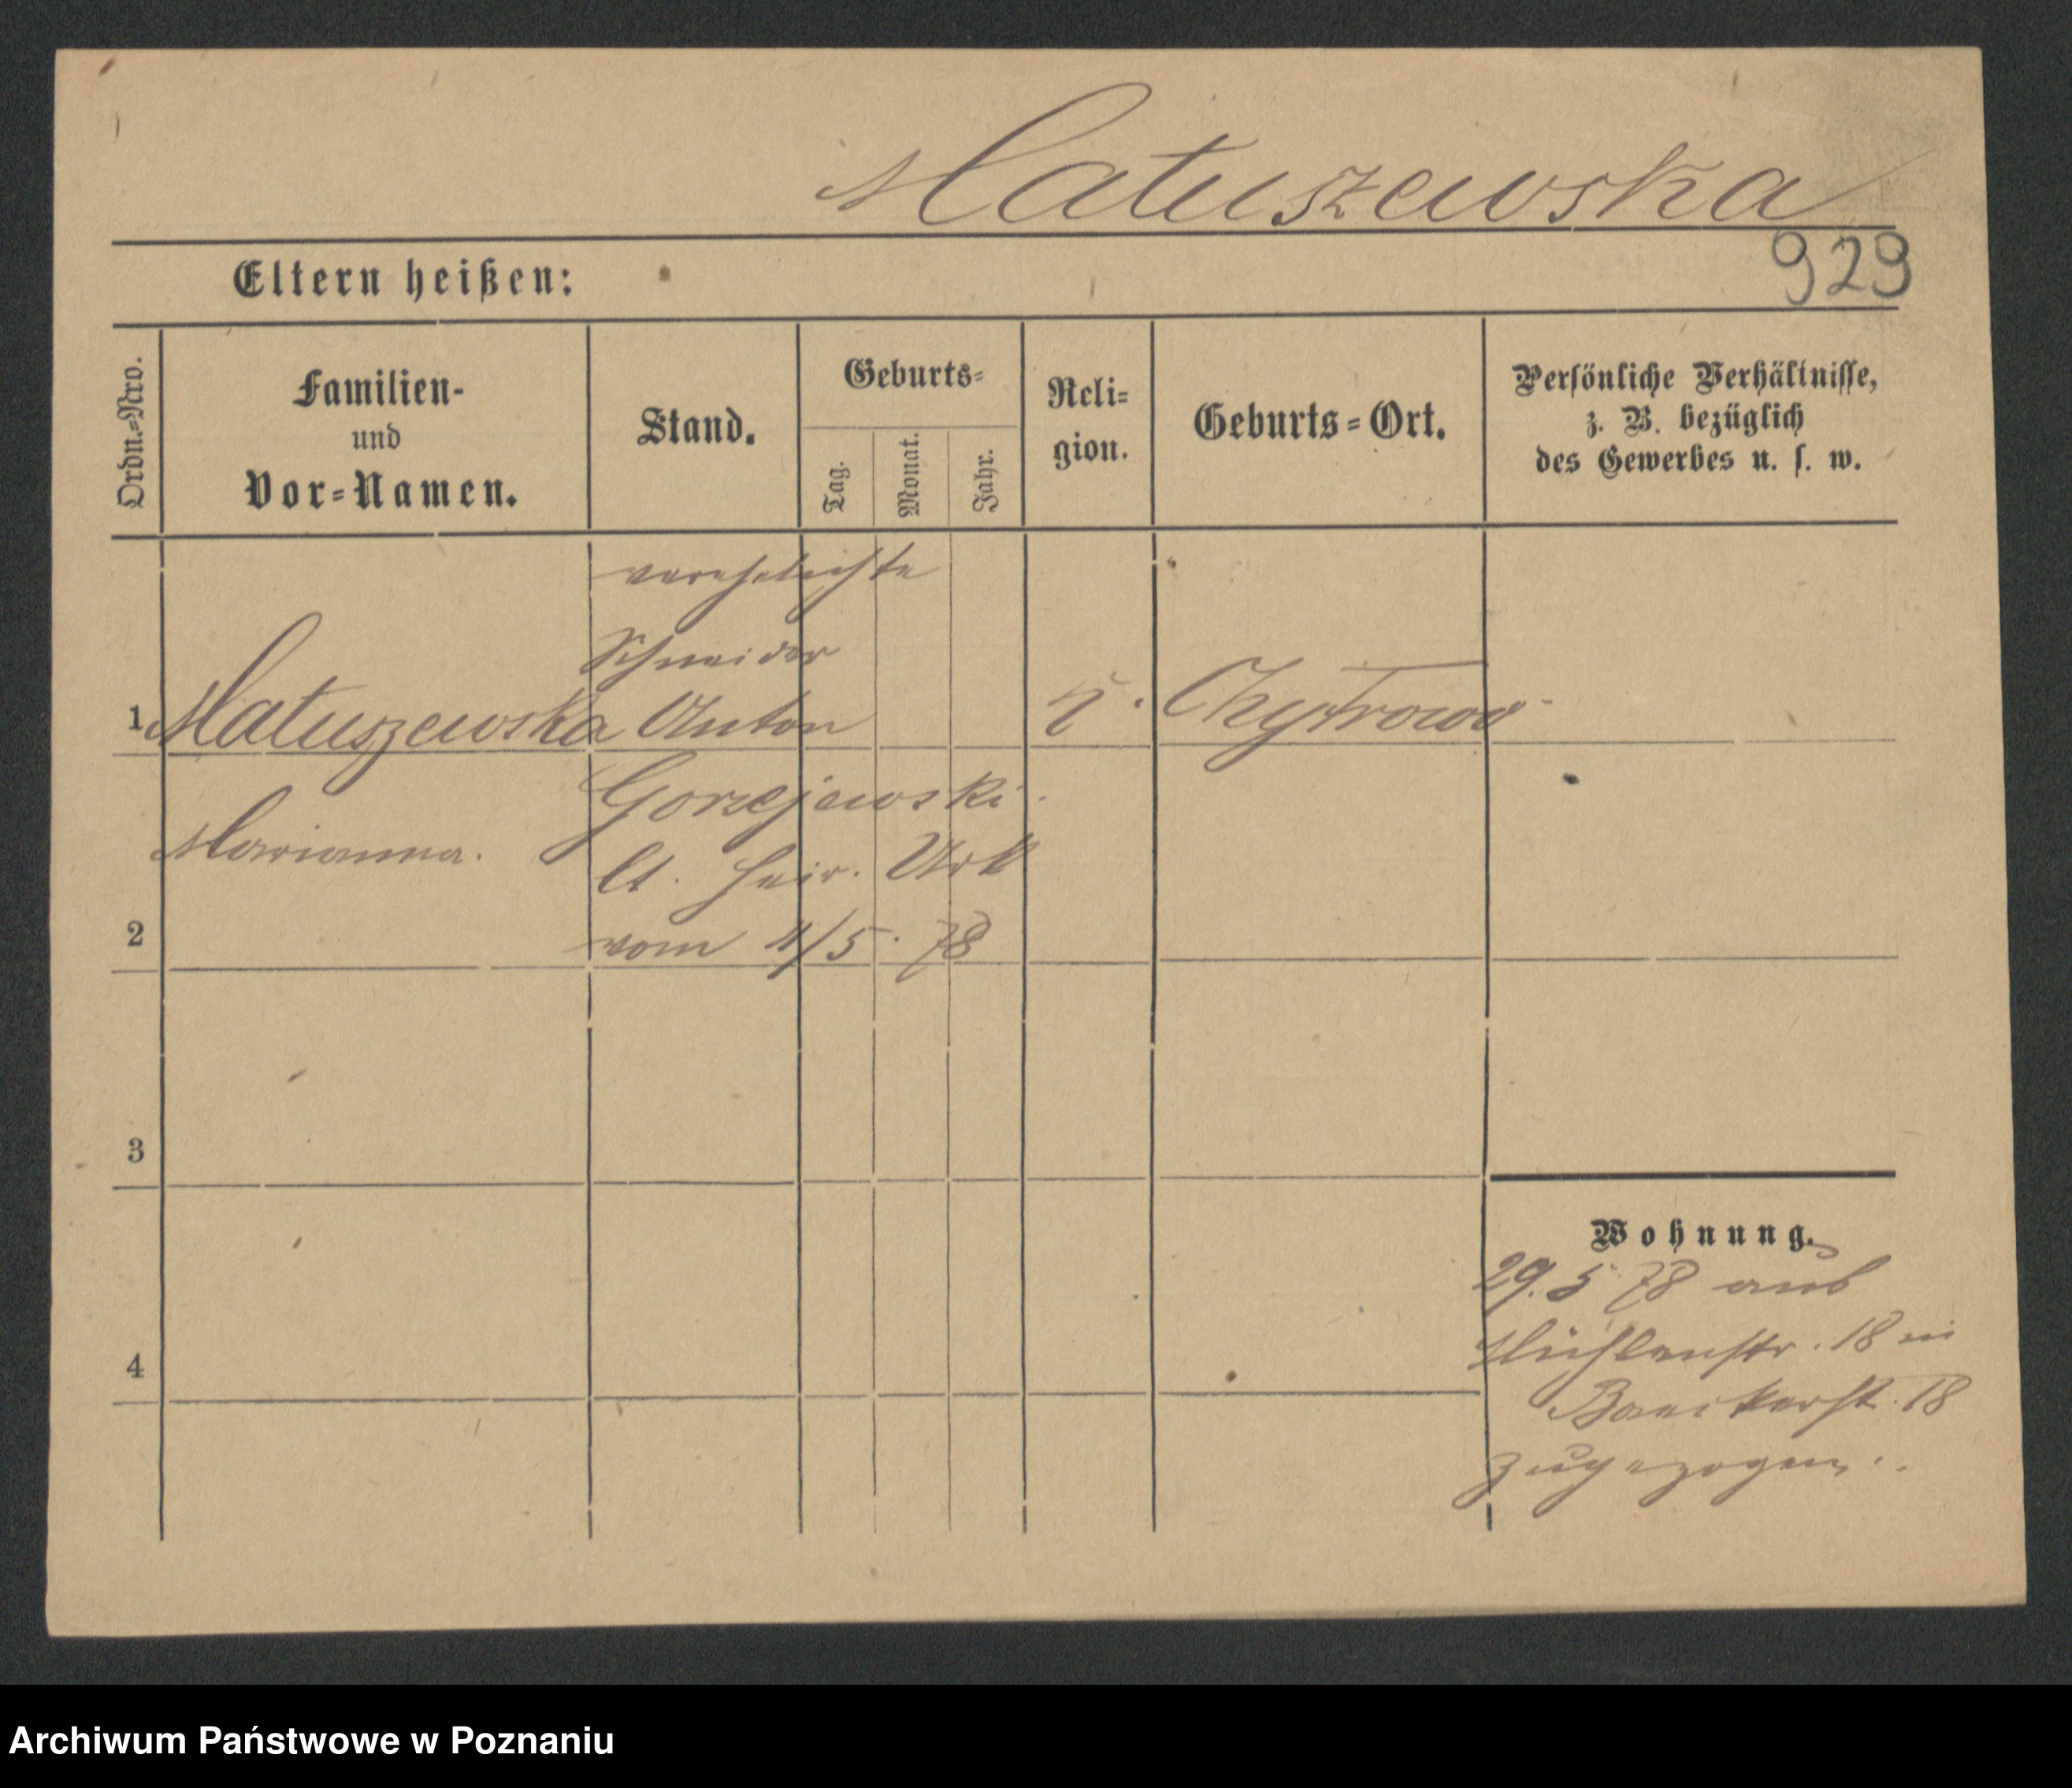 Matuszewska
929
Eltern heißen:
Ordn.=Nro.
Familien-
und
Vor=Namen.
Stand.
Geburts=
Tag.
Monat.
Jahr.
Reli=
gion.
Geburts=Ort.
Persönliche Verhältnisse,
z. B. bezüglich
des Gewerbes u. s. w.
verehelichte
Schneider
1 Matuszewska Anton
Gorzejewski
Marianna.
lt. Heir. Urk
2 vom 4/5. 78
3
4
Wohnung.
29. 5 78 aus
Mühlenstr. 18 in
Baeckerst. 18
zugezogen.
Archiwum Państwowe w Poznaniu